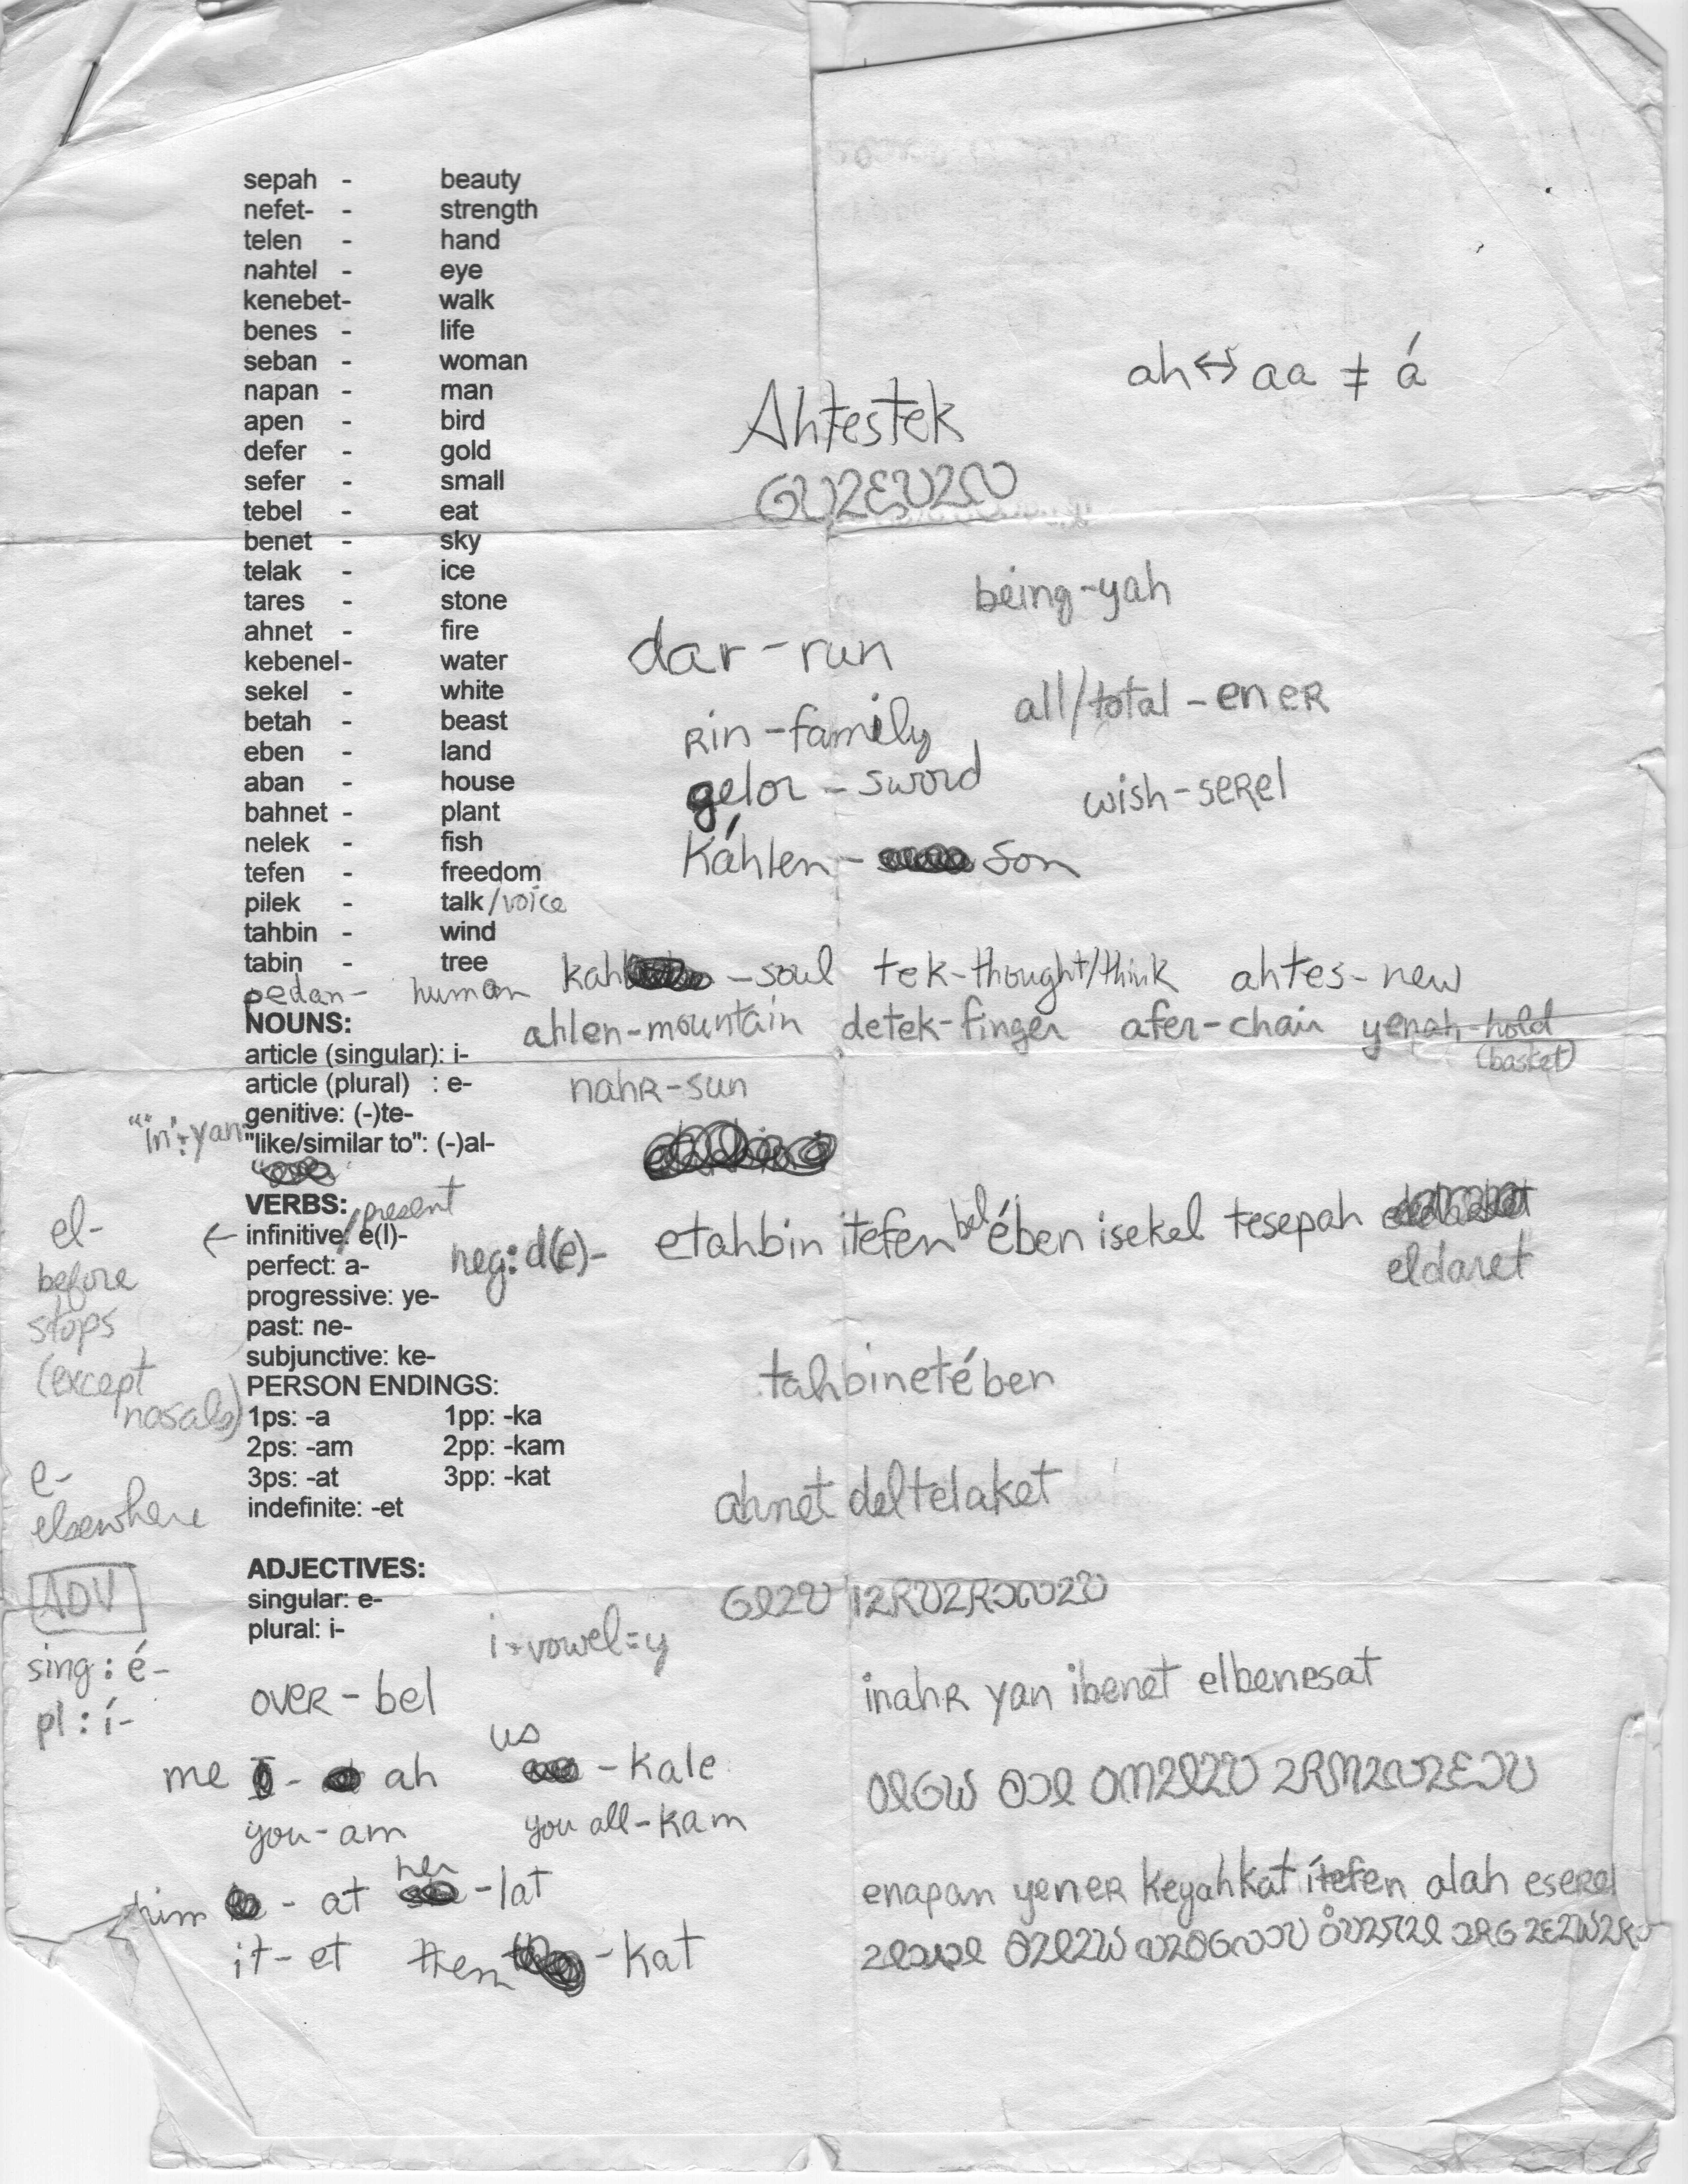 sepah - beauty
nefet- - strength
telen - hand
nahtel - eye
kenebet- walk
benes - life
seban - woman
napan - man
ah↔aa ≠ á
apen - bird
Ahtestek
defer - gold
sefer - small
tebel - eat
benet - sky
telak - ice
being-yah
tares - stone
ahnet - fire
dar-run
kebenel- water
sekel - white
all/total - eneR
betah - beast
Rin-family
eben - land
aban - house
gelor - sword
wish-seRel
bahnet - plant
nelek - fish
Káhlen - son
tefen - freedom
pilek - talk/voice
tahbin - wind
tabin - tree
kah - soul tek-thought/think ahtes-new
pedan- human
NOUNS:
ahlen-mountain detek-finger afer-chair yenah-hold
(basket)
article (singular): i-
article (plural) : e-
nahR-sun
genitive: (-)te-
"in": yan-
"like/similar to": (-)al-
VERBS:
infinitive/present: e(l)-
el-
before
stops
(except
nasals)
e-
elsewhere
perfect: a-
neg: d(e)-
etahbin itefen bel ében isekel tesepah
eldaret
progressive: ye-
past: ne-
subjunctive: ke-
PERSON ENDINGS:
tahbinetében
1ps: -a 1pp: -ka
2ps: -am 2pp: -kam
3ps: -at 3pp: -kat
indefinite: -et
ahnet deltelaket
ADJECTIVES:
singular: e-
plural: i-
i+vowel=y
ADV
sing: é-
pl: í-
oveR - bel
inahR yan ibenet elbenesat
me - ah
us - kale
you - am
you all - kam
him - at
her - lat
it - et
them - kat
enapan yeneR keyahkat ítefen alah eseRel